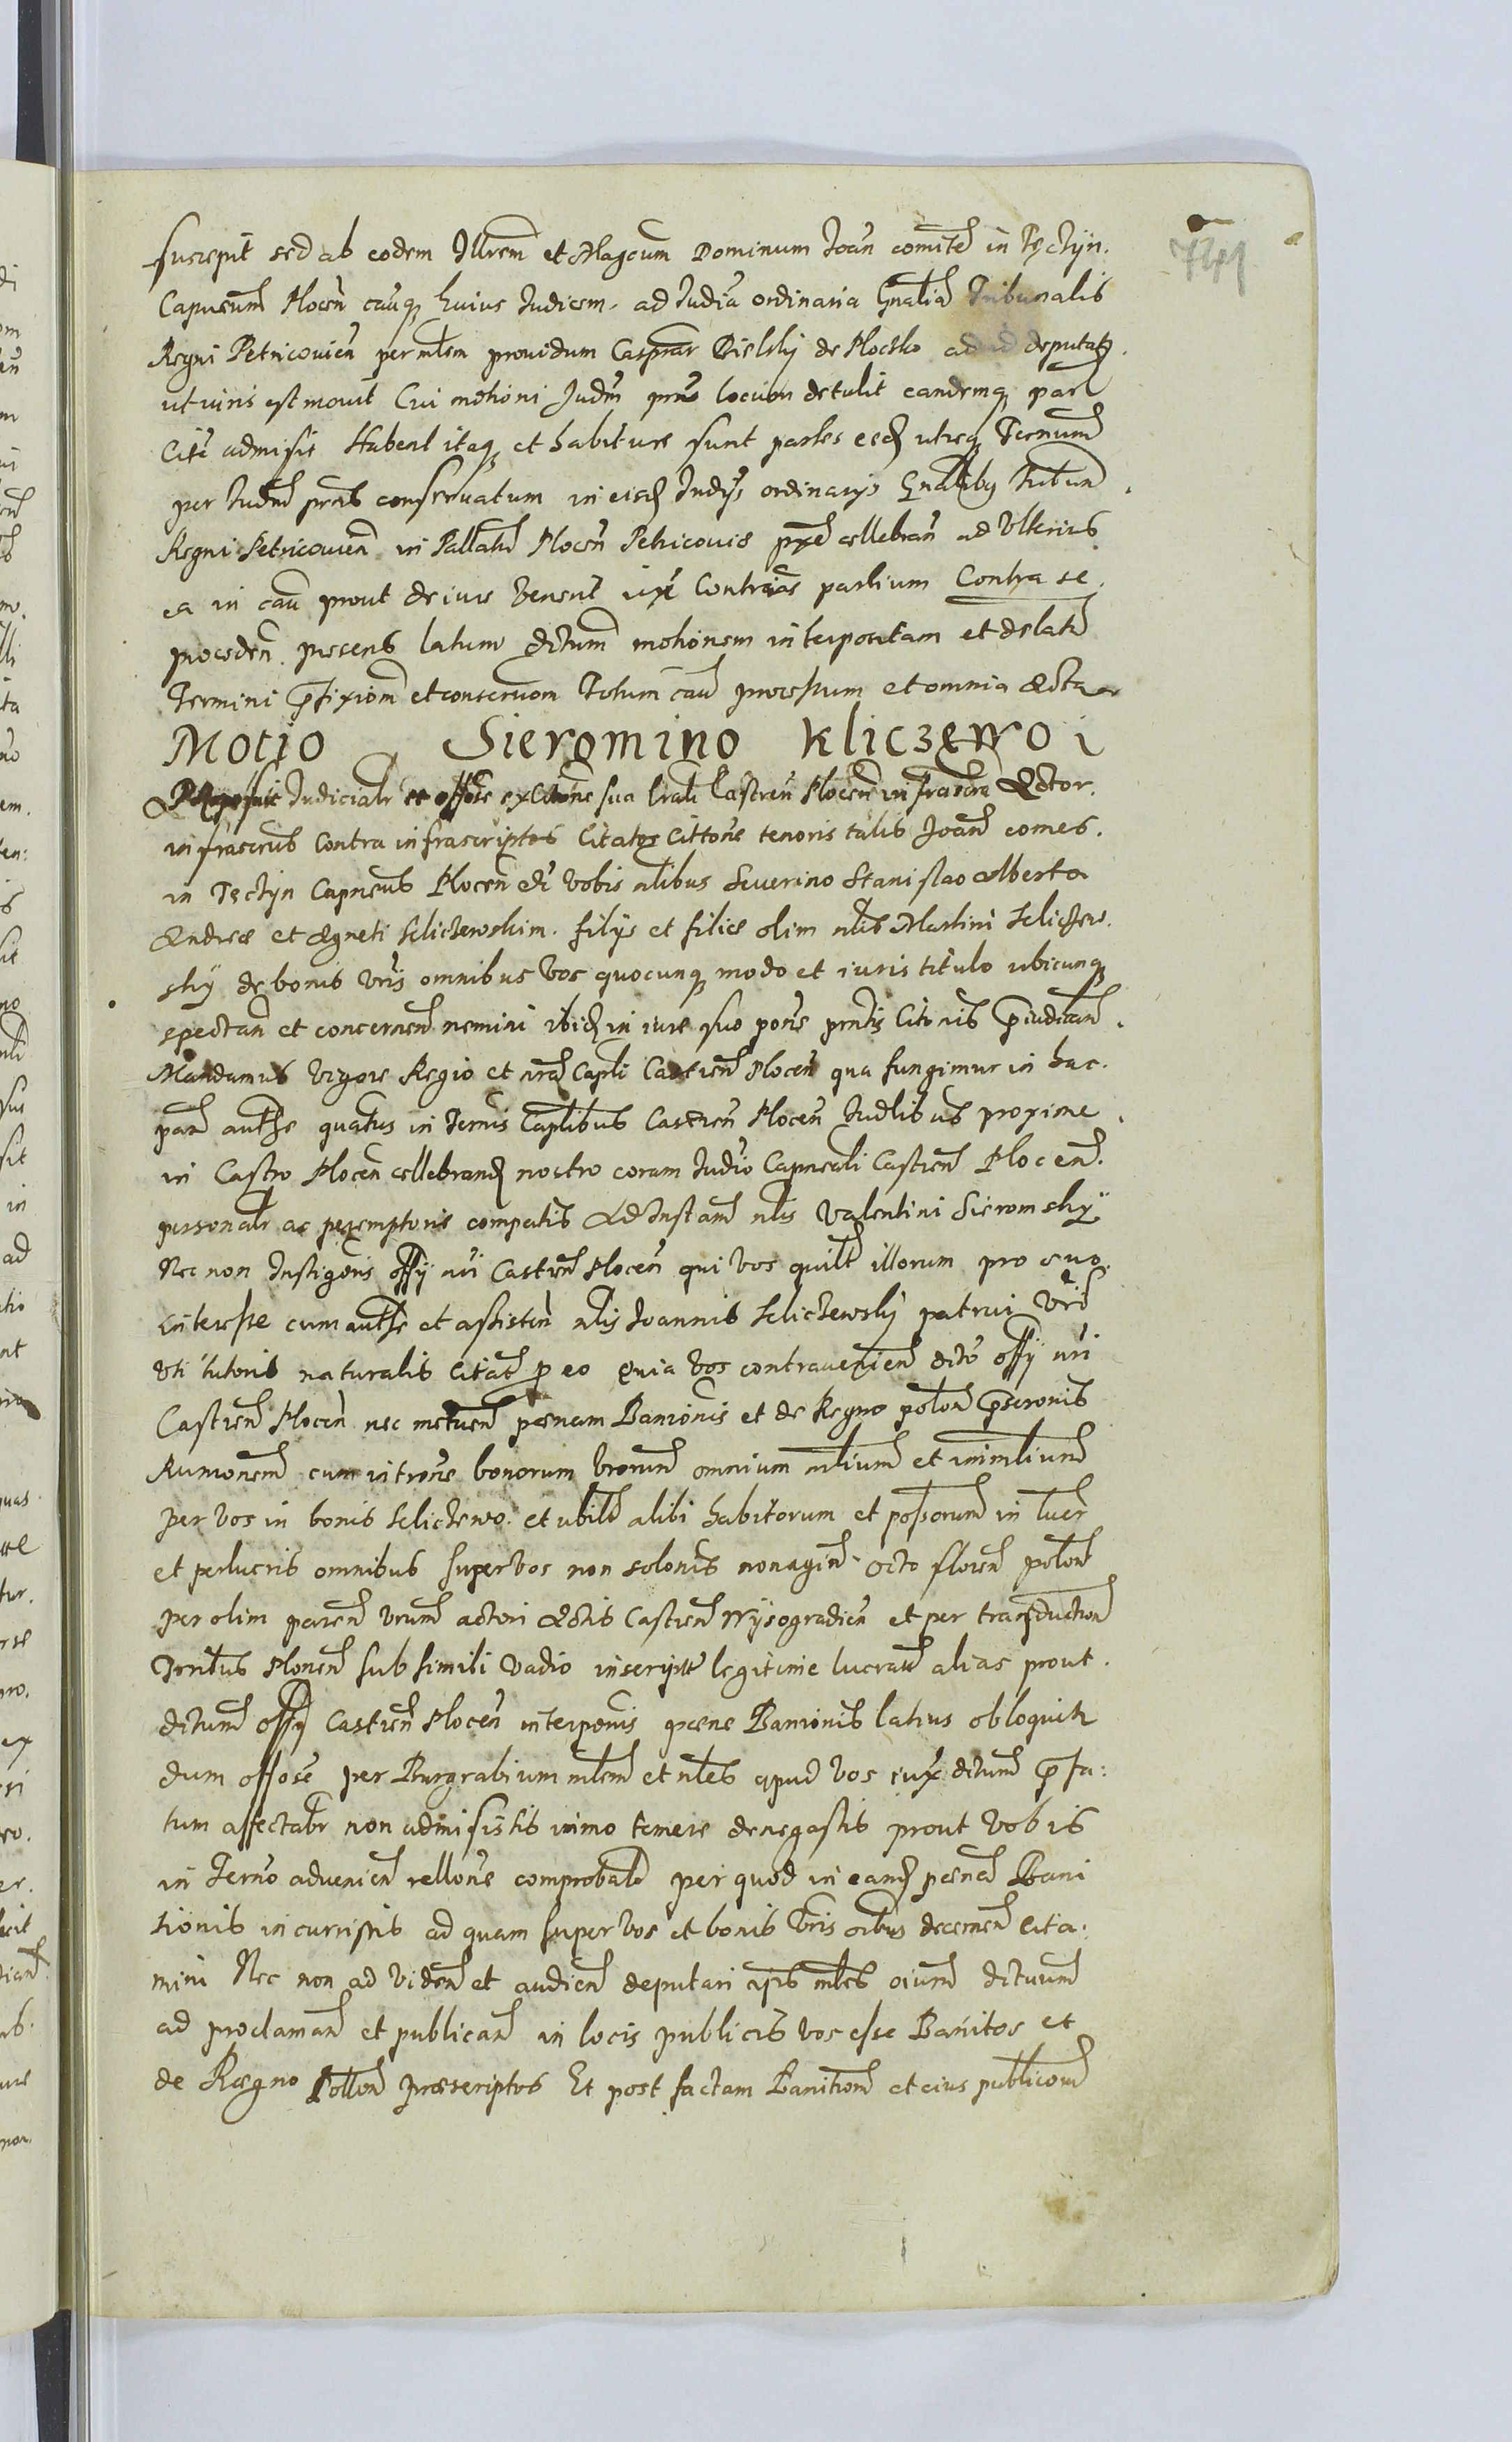 suscepit sed ab eodem Illrem et Magcum Dominum Joan comite in Tęczyn.
Capneum Plocen cauq huius Judicem. ad Judia ordinaria Gnalia Tribunalis
Regni Petricouien per nlem prouidum Casprar Bielsky de Plocsko ad id deputat.
ut iuris est mouit Cui motioni Judm prns locum detulit eandemq par
Cite admisit Habent itaq et habiture sunt partes eed utreq Termum
per Judm prns conseruatum in eisd Judys ordinarys Gnalibq Tribun.
Regni Petricouien in Pallatu Plocen Petricouie pxe cellebran ad Ulterius
ea in cau prout de iure Venent iuxt Contrias partium Contra se.
proceden. presens latum dctum motionem interpositam et delat
Termini pfixiom et conseruom Totum cau processum et omnia acta
Motio Sieromino Kliczewo i
Proposuit Judicialr et offose ex Citone sua lrali Castren Plocen infrascra Actor.
infrascrus Contra infrascriptos Citatos Cittone tenoris talis Joan comes.
in Tęczyn Capneus Plocen etc Vobis nlibus Seuerino Stanislao Alberto
Andree et Agneti Kliczewskim. filys et filie olim nlis Martini Kliczew.
sky de bonis Vris omnibus Vos quocunq modo et iuris titulo ubicunq
spectan et concernen nemini ibid in iure suo pone prntis Citonis piudican.
Mandamus Vigore Regio et nra Capli Castren Plocen qua fungimur in hac.
par authe quatus in Ternis Caplibus Castren Plocen Judlibus proxime.
in Castro Plocen cellebrand nostro coram Judio Capneali Castren Plocen.
personalr ac peremptorie compatis Ad Instam nlis Valentini Sieromsky
Nec non Instigoris offy nri Castren Plocen qui Vos quilt illorum pro suo.
interesse cum authe et assisten nlis Joannis Kliczewsky patrui Vri
Uti tutoris naturalis Citat p eo quia Vos contrauenien dcto offy nri
Castren Plocen nec metuen poenam Banionis et de Regno polon pscronis
Rumonem cum introne bonorum Vrorum omnium mlium et inimlium
per Vos in bonis Kliczewo. et ubilt alibi habitorum et possorum in lucr
et perlucris omnibus super Vos non solonis nonagin octo floren polon
per olim paren Vrum actori Actis Castren Wysogradien et per transduction
Territus Plonen sub simili Vadio inscript legitime lucrat alias prout.
dctum offy Castren Plocen interponis poene Banionis latius obloquitr
dum offose per Burgrabium nlem et nles apud Vos iux dctum pfa:
tum affectabr non admisistis immo temere denegastis prout Vobis
in Terno aduenien rellone comprobatr per quod in eand poena Bani
tionis incurristis ad quam super Vos et bonis Vris oibus decernen cita.
mini Nec non ad Viden et audien deputari ipis nles oium dctuum
ad proclaman et publican in locis publicis Vos esse Banitos et
de Regno Pollon proescriptos Et post factam Banition et eius publicom